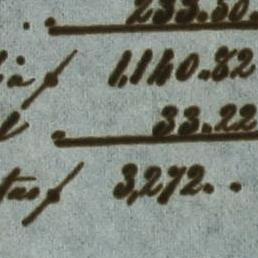 233.50.
1,140.82
33.22
3,272. .